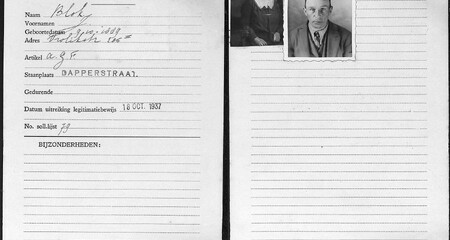 Naam Blok
Voornamen
Geboortedatum
Adres
Artikel a.g.f.
Staanplaats DAPPERSTRAAT.
Gedurende
Datum uitreiking legitimatiebewijs 18 OCT. 1937
No. soll.lijst 79
BIJZONDERHEDEN: